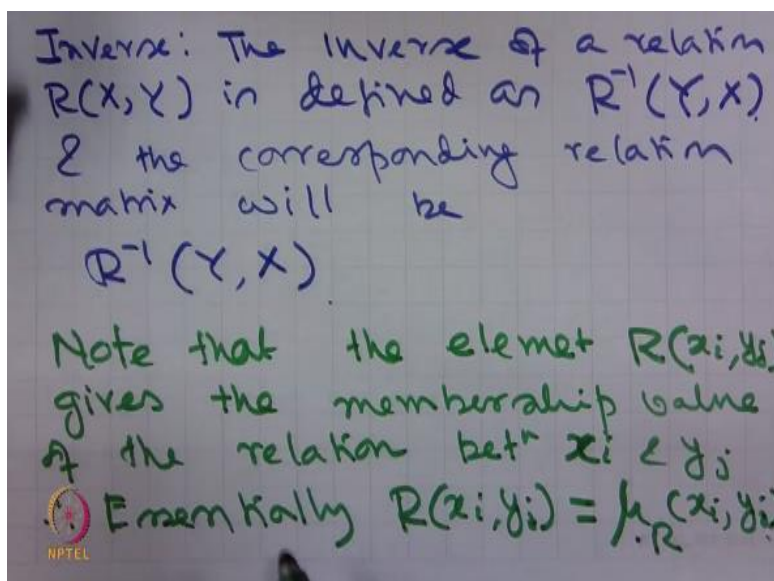 Inverse: The Inverse of a relation
R(X, Y) is defined as R⁻¹(Y, X)
& the corresponding relation
matrix will be
R⁻¹(Y, X)
Note that the elemet R(xi, yj)
gives the membership value
of the relation betⁿ xi & yj
∴ Essentially R(xi, yj) = μR(xi, yj)
NPTEL